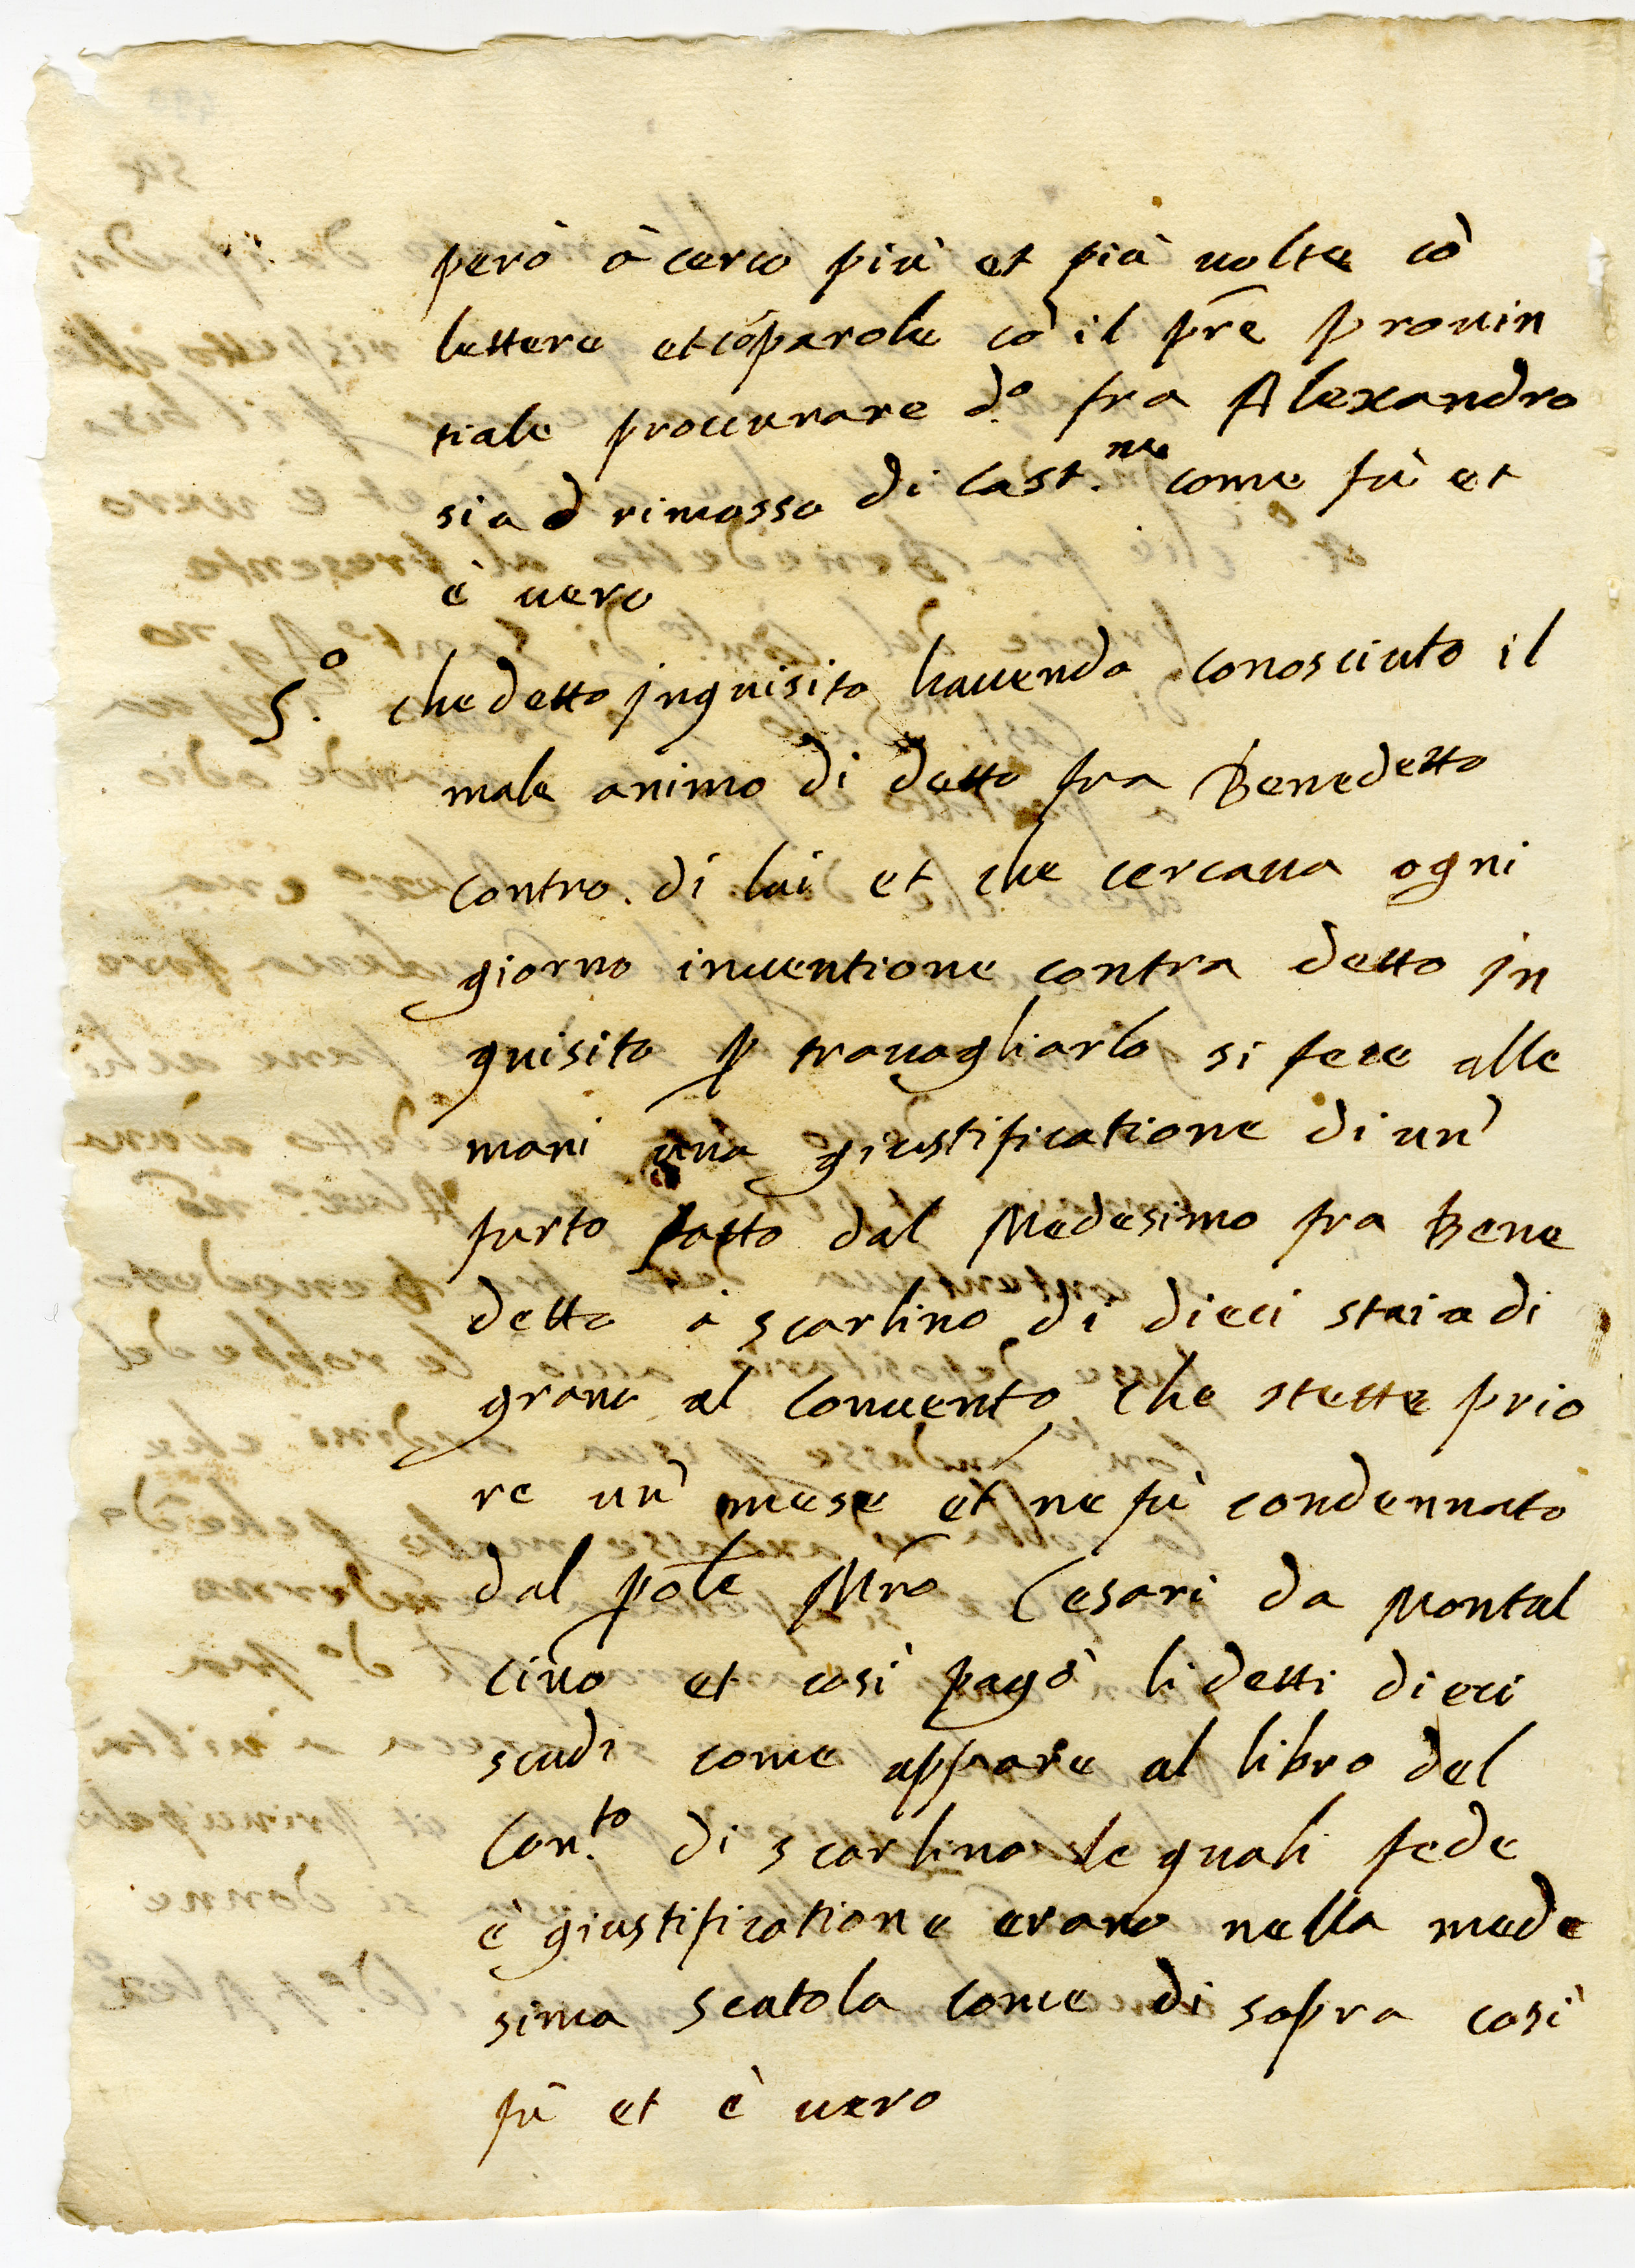 però à cerco più et più uolte cò
lettere et cò parole cò il pr̃e prouin
tiale proccurare d.º fra Alexandro
sia rimosso di Cast.ne come fù et
è uero
5.º che detto jnquisito hauendo conosciuto il
male animo di detto fra Benedetto
contro di lui et che cercaua ogni
giorno inuentione contra detto jn
quisito p trauagliarlo si fece alle
mani una giustificatione di un'
furto fatto dal Medesimo fra Bene
detto à scarlino di dieci staia di
grano al Conuento che stette prio
re un' mese et ne fù condennato
dal p̃ole Mr̃o Cesari da Montal
cino et così pagò li detti dieci
scudi come appare al libro del
Con.to di scarlino le quali fede
è giustificatione erano nella mede
sima scatola come di sopra così
fù et è uero